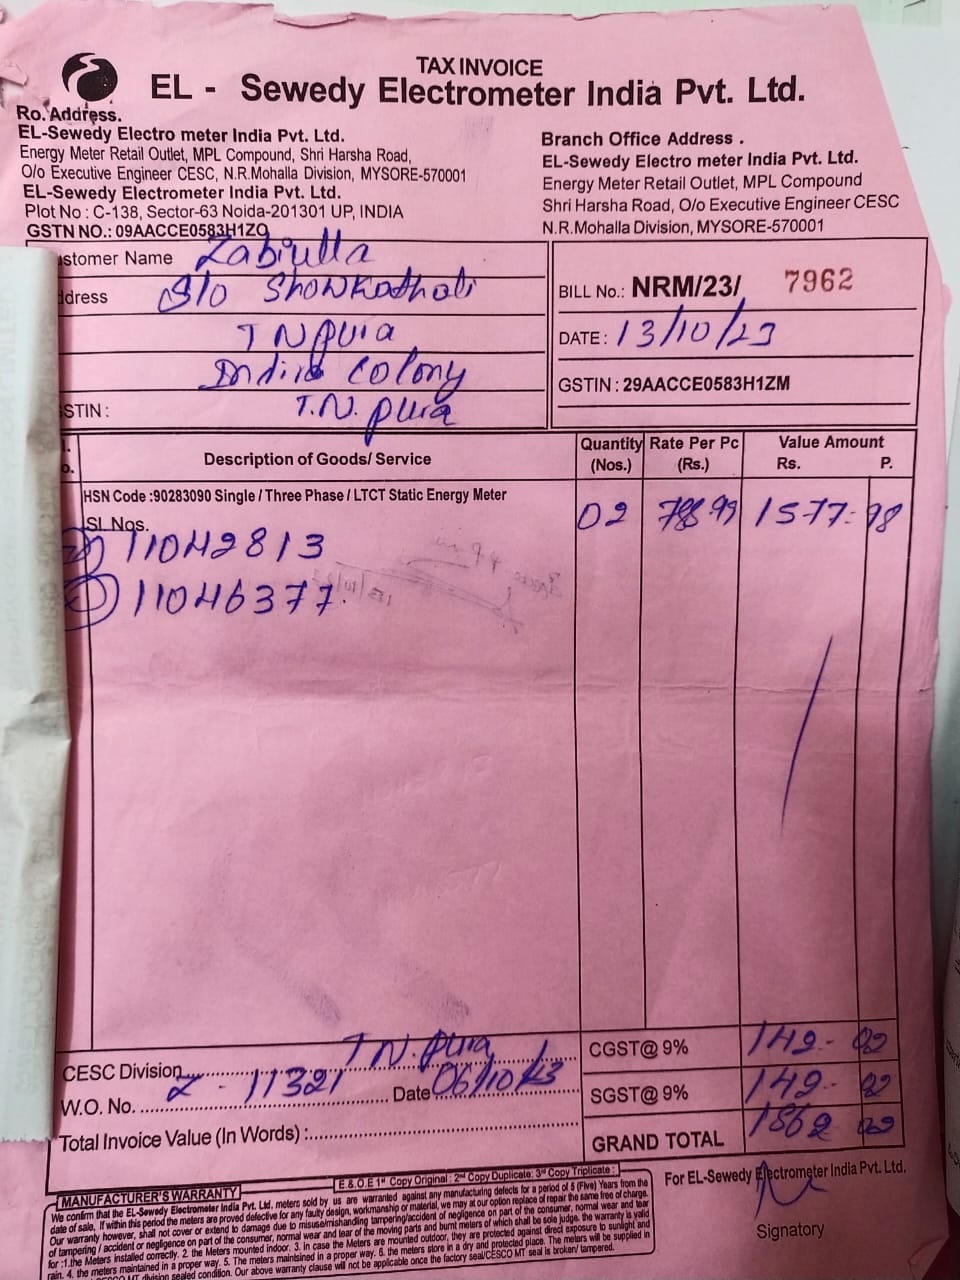 TAX INVOICE
EL - Sewedy Electrometer India Pvt. Ltd.
Ro. Address.
EL-Sewedy Electro meter India Pvt. Ltd.
Energy Meter Retail Outlet, MPL Compound, Shri Harsha Road,
O/o Executive Engineer CESC, N.R.Mohalla Division, MYSORE-570001
EL-Sewedy Electrometer India Pvt. Ltd.
Plot No : C-138, Sector-63 Noida-201301 UP, INDIA
GSTN NO.: 09AACCE0583H1ZO
Branch Office Address .
EL-Sewedy Electro meter India Pvt. Ltd.
Energy Meter Retail Outlet, MPL Compound
Shri Harsha Road, O/o Executive Engineer CESC
N.R.Mohalla Division, MYSORE-570001
stomer Name Zabiulla
ddress S/o Showkathali
T N pura
Indira Colony
STIN : T.N. pura
BILL No.: NRM/23/ 7962
DATE : 13/10/23
GSTIN : 29AACCE0583H1ZM
Description of Goods/ Service Quantity (Nos.) Rate Per Pc (Rs.) Value Amount Rs. P.
HSN Code :90283090 Single / Three Phase / LTCT Static Energy Meter 02 788.99 1577=98
Sl. Nos.
11042813
11046377
CESC Division T N. pura
W.O. No. Z - 11321 Date 06/10/23
Total Invoice Value (In Words) :
CGST@ 9% 142- 02
SGST@ 9% 142- 02
GRAND TOTAL 1862 02
E.& O.E 1st Copy Original : 2nd Copy Duplicate: 3rd Copy Triplicate :
For EL-Sewedy Electrometer India Pvt. Ltd.
Signatory
MANUFACTURER'S WARRANTY
We confirm that the EL-Sewedy Electrometer India Pvt Ltd. meters sold by us are warranted against any manufacturing defects for a period of 5 (Five) Years from the
date of sale. If within this period the meters are proved defective for any faulty design, workmanship or material, we may at our option replace of repair the same free of charge.
Our warranty however, shall not cover or extend to damage due to misuse/mishandling tampering/accident of negligence on part of the consumer, normal wear and tear
of tampering / accident or negligence on part of the consumer, normal wear and tear of the moving parts and burnt meters of which shall be sole judge. the warranty is valid
for :1.the Meters installed correctly. 2. the Meters mounted indoor. 3. in case the Meters are mounted outdoor, they are protected against direct exposure to sunlight and
rain. 4. the meters maintained in a proper way. 5. The meters maintained in a proper way. 6. the meters store in a dry and protected place. The meters will be supplied in
division sealed condition. Our above warranty clause will not be applicable once the factory seal/CESCO MT seal is broken/ tampered.